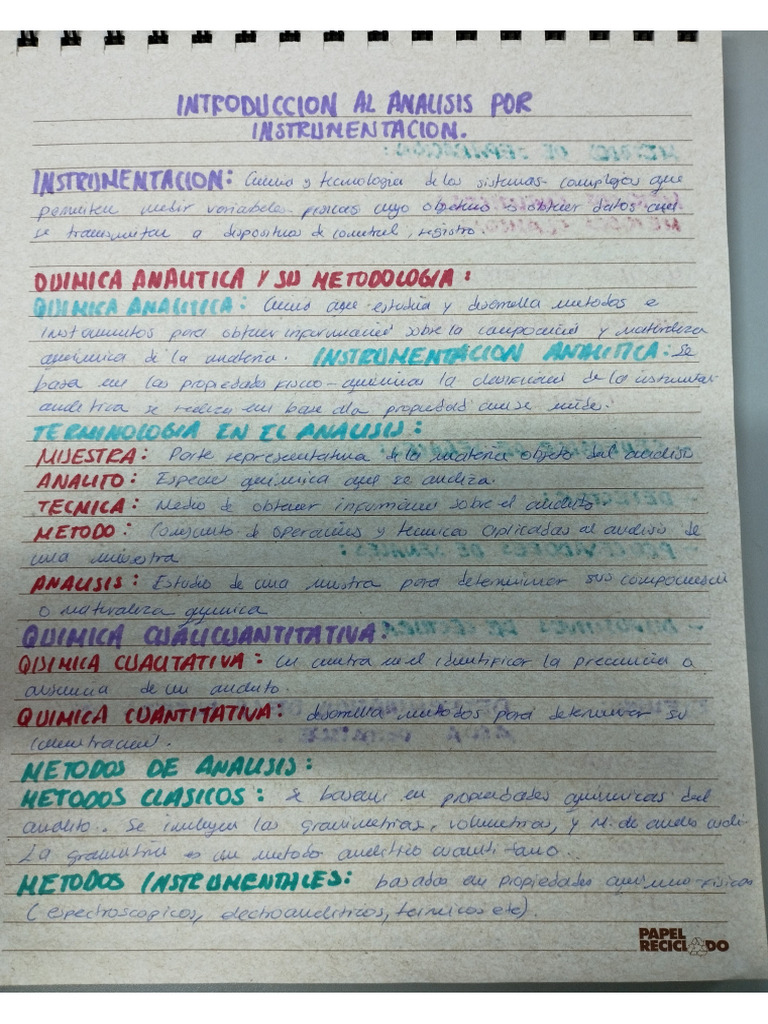 INTRODUCCION AL ANALISIS POR
INSTRUMENTACION.
INSTRUMENTACION: Ciencia y tecnologia de los sistemas complejos que
permiten medir variables fisicas cuyo objetivo es obtener datos que
se transmiten a dispositivos de control, registro
QUIMICA ANALITICA Y SU METODOLOGIA:
QUIMICA ANALITICA: Ciencia que estudia y desarrolla metodos e
instrumentos para obtener informacion sobre la composicion y naturaleza
quimica de la materia. INSTRUMENTACION ANALITICA: Se
basa en las propiedades fisico-quimicas la clasificacion de la instrumentacion
analitica se realiza en base a la propiedad que se mide.
TERMINOLOGIA EN EL ANALISIS:
MUESTRA: Parte representativa de la materia objeto del analisis
ANALITO: Especie quimica que se analiza.
TECNICA: Medio de obtener informacion sobre el analito
METODO: Conjunto de operaciones y tecnicas aplicadas al analisis de
una muestra
ANALISIS: Estudio de una muestra para determinar sus composicion
o naturaleza quimica
QUIMICA CUALICUANTITATIVA:
QUIMICA CUALITATIVA: Se centra en el identificar la presencia o
ausencia de un analito.
QUIMICA CUANTITATIVA: desarrolla metodos para determinar su
concentracion.
METODOS DE ANALISIS:
METODOS CLASICOS: Se basan en propiedades quimicas del
analito. Se incluyen las gravimetrias, volumetrias, y M. de analisis cuali
La gravimetria es un metodo analitico cuantitativo.
METODOS INSTRUMENTALES: basados en propiedades quimico-fisicas
(espectroscopicos, electroanaliticos, termicos etc).
PAPEL
RECICLADO